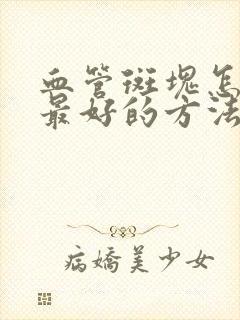 血管斑块怎
最好的方法
病娇美少女